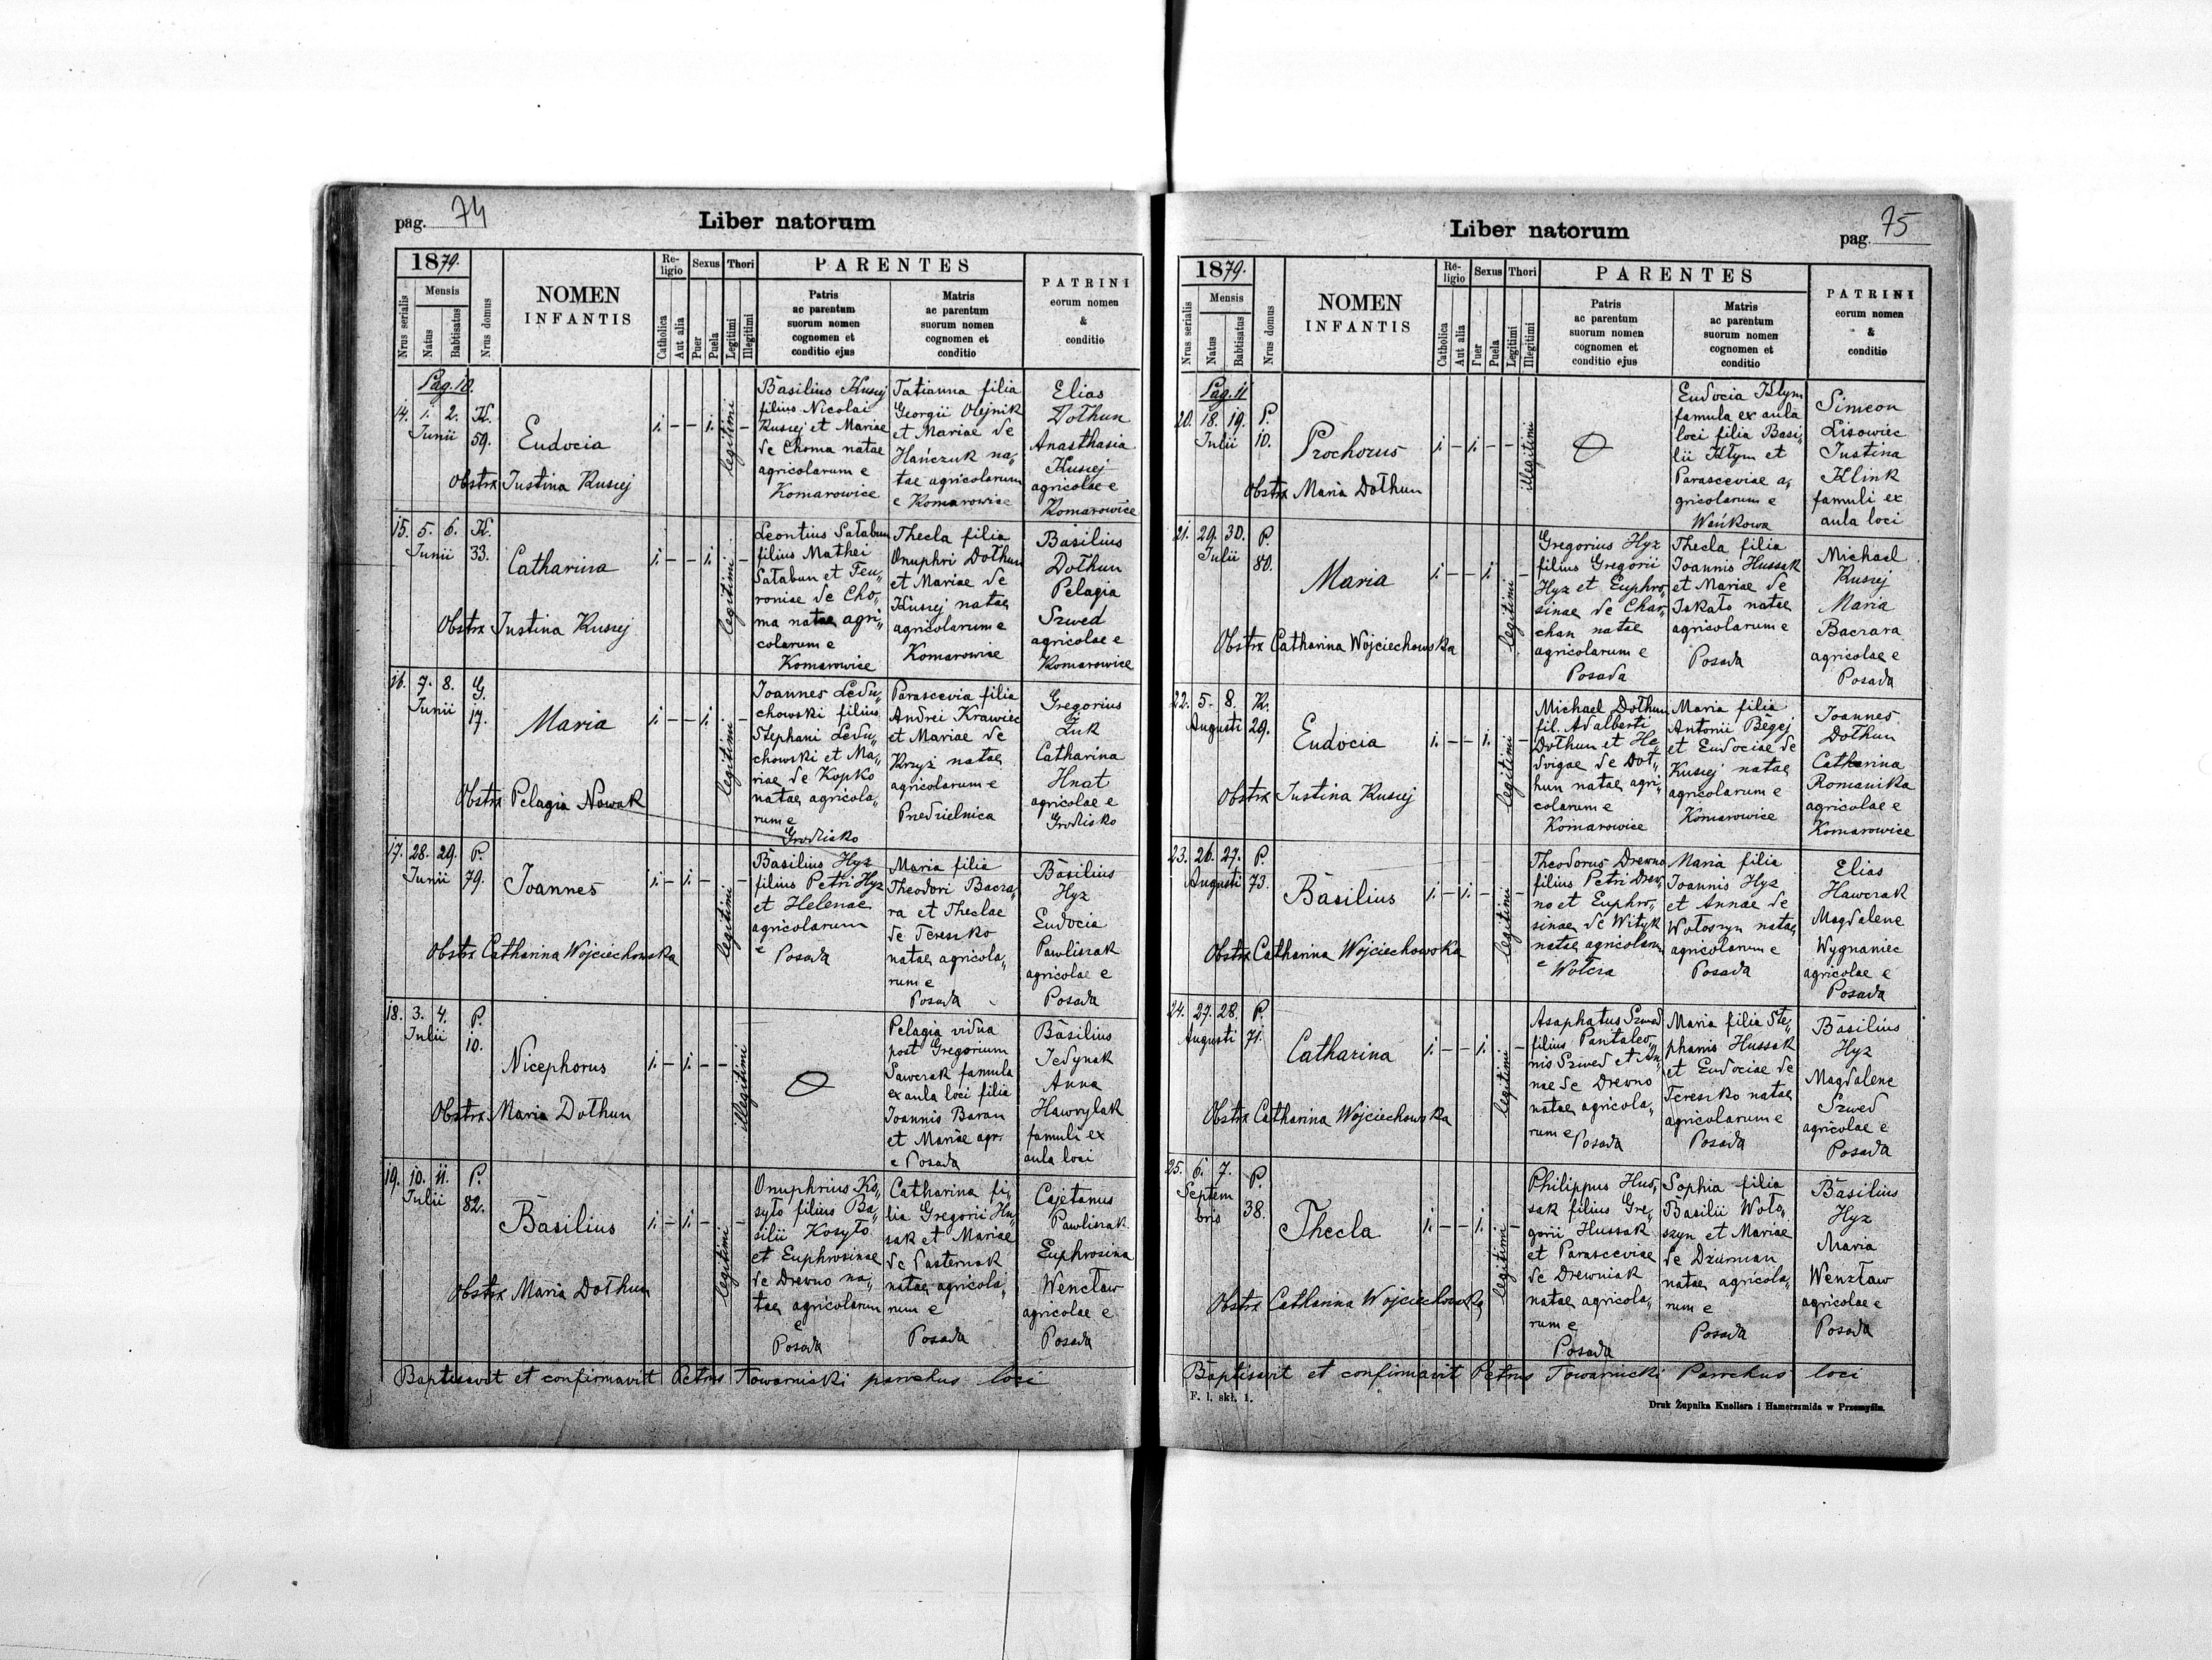 pag. 74
Liber natorum
1879.
Nrus serialis
Mensis
Natus
Babtisatus
Nrus domus
NOMEN
INFANTIS
Re-
ligio
Catholica
Aut alia
Sexus
Puer
Puela
Thori
Legitimi
Illegitimi
PARENTES
Patris
ac parentum
suorum nomen
cognomen et
conditio ejus
Matris
ac parentum
suorum nomen
cognomen et
conditio
PATRINI
eorum nomen
&
conditio
Pag. 10.
14. 1. 2. K.
Junii 59.
Eudocia
Obstrx Justina Kusiej
1. – – 1. legitimi –
Basilius Kusiej
filius Nicolai
Kusiej et Mariae
de Choma natae
agricolarum e
Komarowice
Tatianna filia
Georgii Olejnik
et Mariae de
Hańczuk na„
tae agricolarum
e Komarowice
Elias
Dołhun
Anasthasia
Kusiej
agricolae e
Komarowice
15. 5. 6. K.
Junii 33.
Catharina
Obstrx Justina Kusiej
1. – – 1. legitimi –
Leontius Satabun
filius Mathei
Satabun et Feu„
roniae de Cho„
ma natae agri„
colarum e
Komarowice
Thecla filia
Onuphri Dołhun
et Mariae de
Kusiej natae
agricolarum e
Komarowice
Basilius
Dołhun
Pelagia
Szwed
agricolae e
Komarowice
16. 7. 8. G.
Junii 17.
Maria
Obstrx Pelagia Nowak
1. – – 1. legitimi –
Joannes Ledu„
chowski filius
Stephani Ledu„
chowski et Ma„
riae de Kopko
natae agricola„
rum e
Grodzisko
Parascevia filia
Andrei Krawiec
et Mariae de
Krzyż natae
agricolarum e
Predzielnica
Gregorius
Żuk
Catharina
Hnat
agricolae e
Grodzisko
17. 28. 29. P.
Junii 79.
Joannes
Obstrx Catharina Wojciechowska
1. – 1. – legitimi –
Basilius Hyz
filius Petri Hyz
et Helenae
agricolarum
e Posada
Maria filia
Theodori Bacza„
ra et Theclae
de Tereszko
natae agricola„
rum e
Posada
Basilius
Hyz
Eudocia
Pawliszak
agricolae e
Posada
18. 3. 4. P.
Julii 10.
Nicephorus
Obstrx Maria Dołhun
1. – 1. – – illegitimi
Pelagia vidua
post Gregorium
Sawczak famula
ex aula loci filia
Joannis Baran
et Mariae agr.
e Posada
Basilius
Jedynak
Anna
Hawrylak
famuli ex
aula loci
19. 10. 11. P.
Julii 82.
Basilius
Obstrx Maria Dołhun
1. – 1. – legitimi –
Onuphrius Ko„
syło filius Ba„
silii Kosyło
et Euphrosinae
de Drewno na„
tae agricolarum
e
Posada
Catharina fi„
lia Gregorii Hu„
sak et Mariae
de Pasternak
natae agricola„
rum e
Posada
Cajetanus
Pawliszak
Euphrosina
Wencław
agricolae e
Posada
Baptisavit et confirmavit Petrus Towarnicki parochus loci
Liber natorum
pag. 75
1879.
Nrus serialis
Mensis
Natus
Babtisatus
Nrus domus
NOMEN
INFANTIS
Re-
ligio
Catholica
Aut alia
Sexus
Puer
Puela
Thori
Legitimi
Illegitimi
PARENTES
Patris
ac parentum
suorum nomen
cognomen et
conditio ejus
Matris
ac parentum
suorum nomen
cognomen et
conditio
PATRINI
eorum nomen
&
conditio
Pag. 11
20. 18. 19. P.
Julii 10.
Prochorus
Obstrx Maria Dołhun
1. – 1. – – illegitimi
Eudocia Kłym
famula ex aula
loci filia Basi„
lii Kłym et
Parasceviae a„
gricolarum e
Wańkowa
Simeon
Lisowiec
Justina
Klink
famuli ex
aula loci
21. 29. 30. P.
Julii 80.
Maria
Obstrx Catharina Wojciechowska
1. – – 1. legitimi –
Gregorius Hyz
filius Gregorii
Hyz et Euphro„
sinae de Char„
chan natae
agricolarum e
Posada
Thecla filia
Joannis Hussak
et Mariae de
Jakało natae
agricolarum e
Posada
Michael
Kusiej
Maria
Baczara
agricolae e
Posada
22. 5. 8. K.
Augusti 29.
Eudocia
Obstrx Justina Kusiej
1. – – 1. legitimi –
Michael Dołhun
fil. Adalberti
Dołhun et He„
dvigae de Doł„
hun natae agri„
colarum e
Komarowice
Maria filia
Antonii Begej
et Eudociae de
Kusiej natae
agricolarum e
Komarowice
Joannes
Dołhun
Catharina
Romanika
agricolae e
Komarowice
23. 26. 27. P.
Augusti 73.
Basilius
Obstrx Catharina Wojciechowska
1. – 1. – legitimi –
Theodorus Drewno
filius Petri Drew„
no et Euphro„
sinae de Wityk
natae agricolarum
e Wołcza
Maria filia
Joannis Hyz
et Annae de
Wołoszyn natae
agricolarum e
Posada
Elias
Hawczak
Magdalene
Wygnaniec
agricolae e
Posada
24. 27. 28. P.
Augusti 71.
Catharina
Obstrx Catharina Wojciechowska
1. – – 1. legitimi –
Asaphatus Szwed
filius Pantaleo„
nis Szwed et An„
nae de Drewno
natae agricola„
rum e Posada
Maria filia Ste„
phanis Hussak
et Eudociae de
Tereszko natae
agricolarum e
Posada
Basilius
Hyz
Magdalene
Szwed
agricolae e
Posada
25. 6. 7. P.
Septem
bris 38.
Thecla
Obstrx Catharina Wojciechowska
1. – – 1. legitimi –
Philippus Hus„
sak filius Gre„
gorii Hussak
et Parasceviae
de Drewniak
natae agricola„
rum e
Posada
Sophia filia
Basilii Woło„
szyn et Mariae
de Dziurman
natae agricola„
rum e
Posada
Basilius
Hyz
Maria
Wenzław
agricolae e
Posada
Baptisavit et confirmavit Petrus Towarnicki Parochus loci
F. l. skł. 1.
Druk Żupnika Knollera i Hamerszmida w Przemyślu.